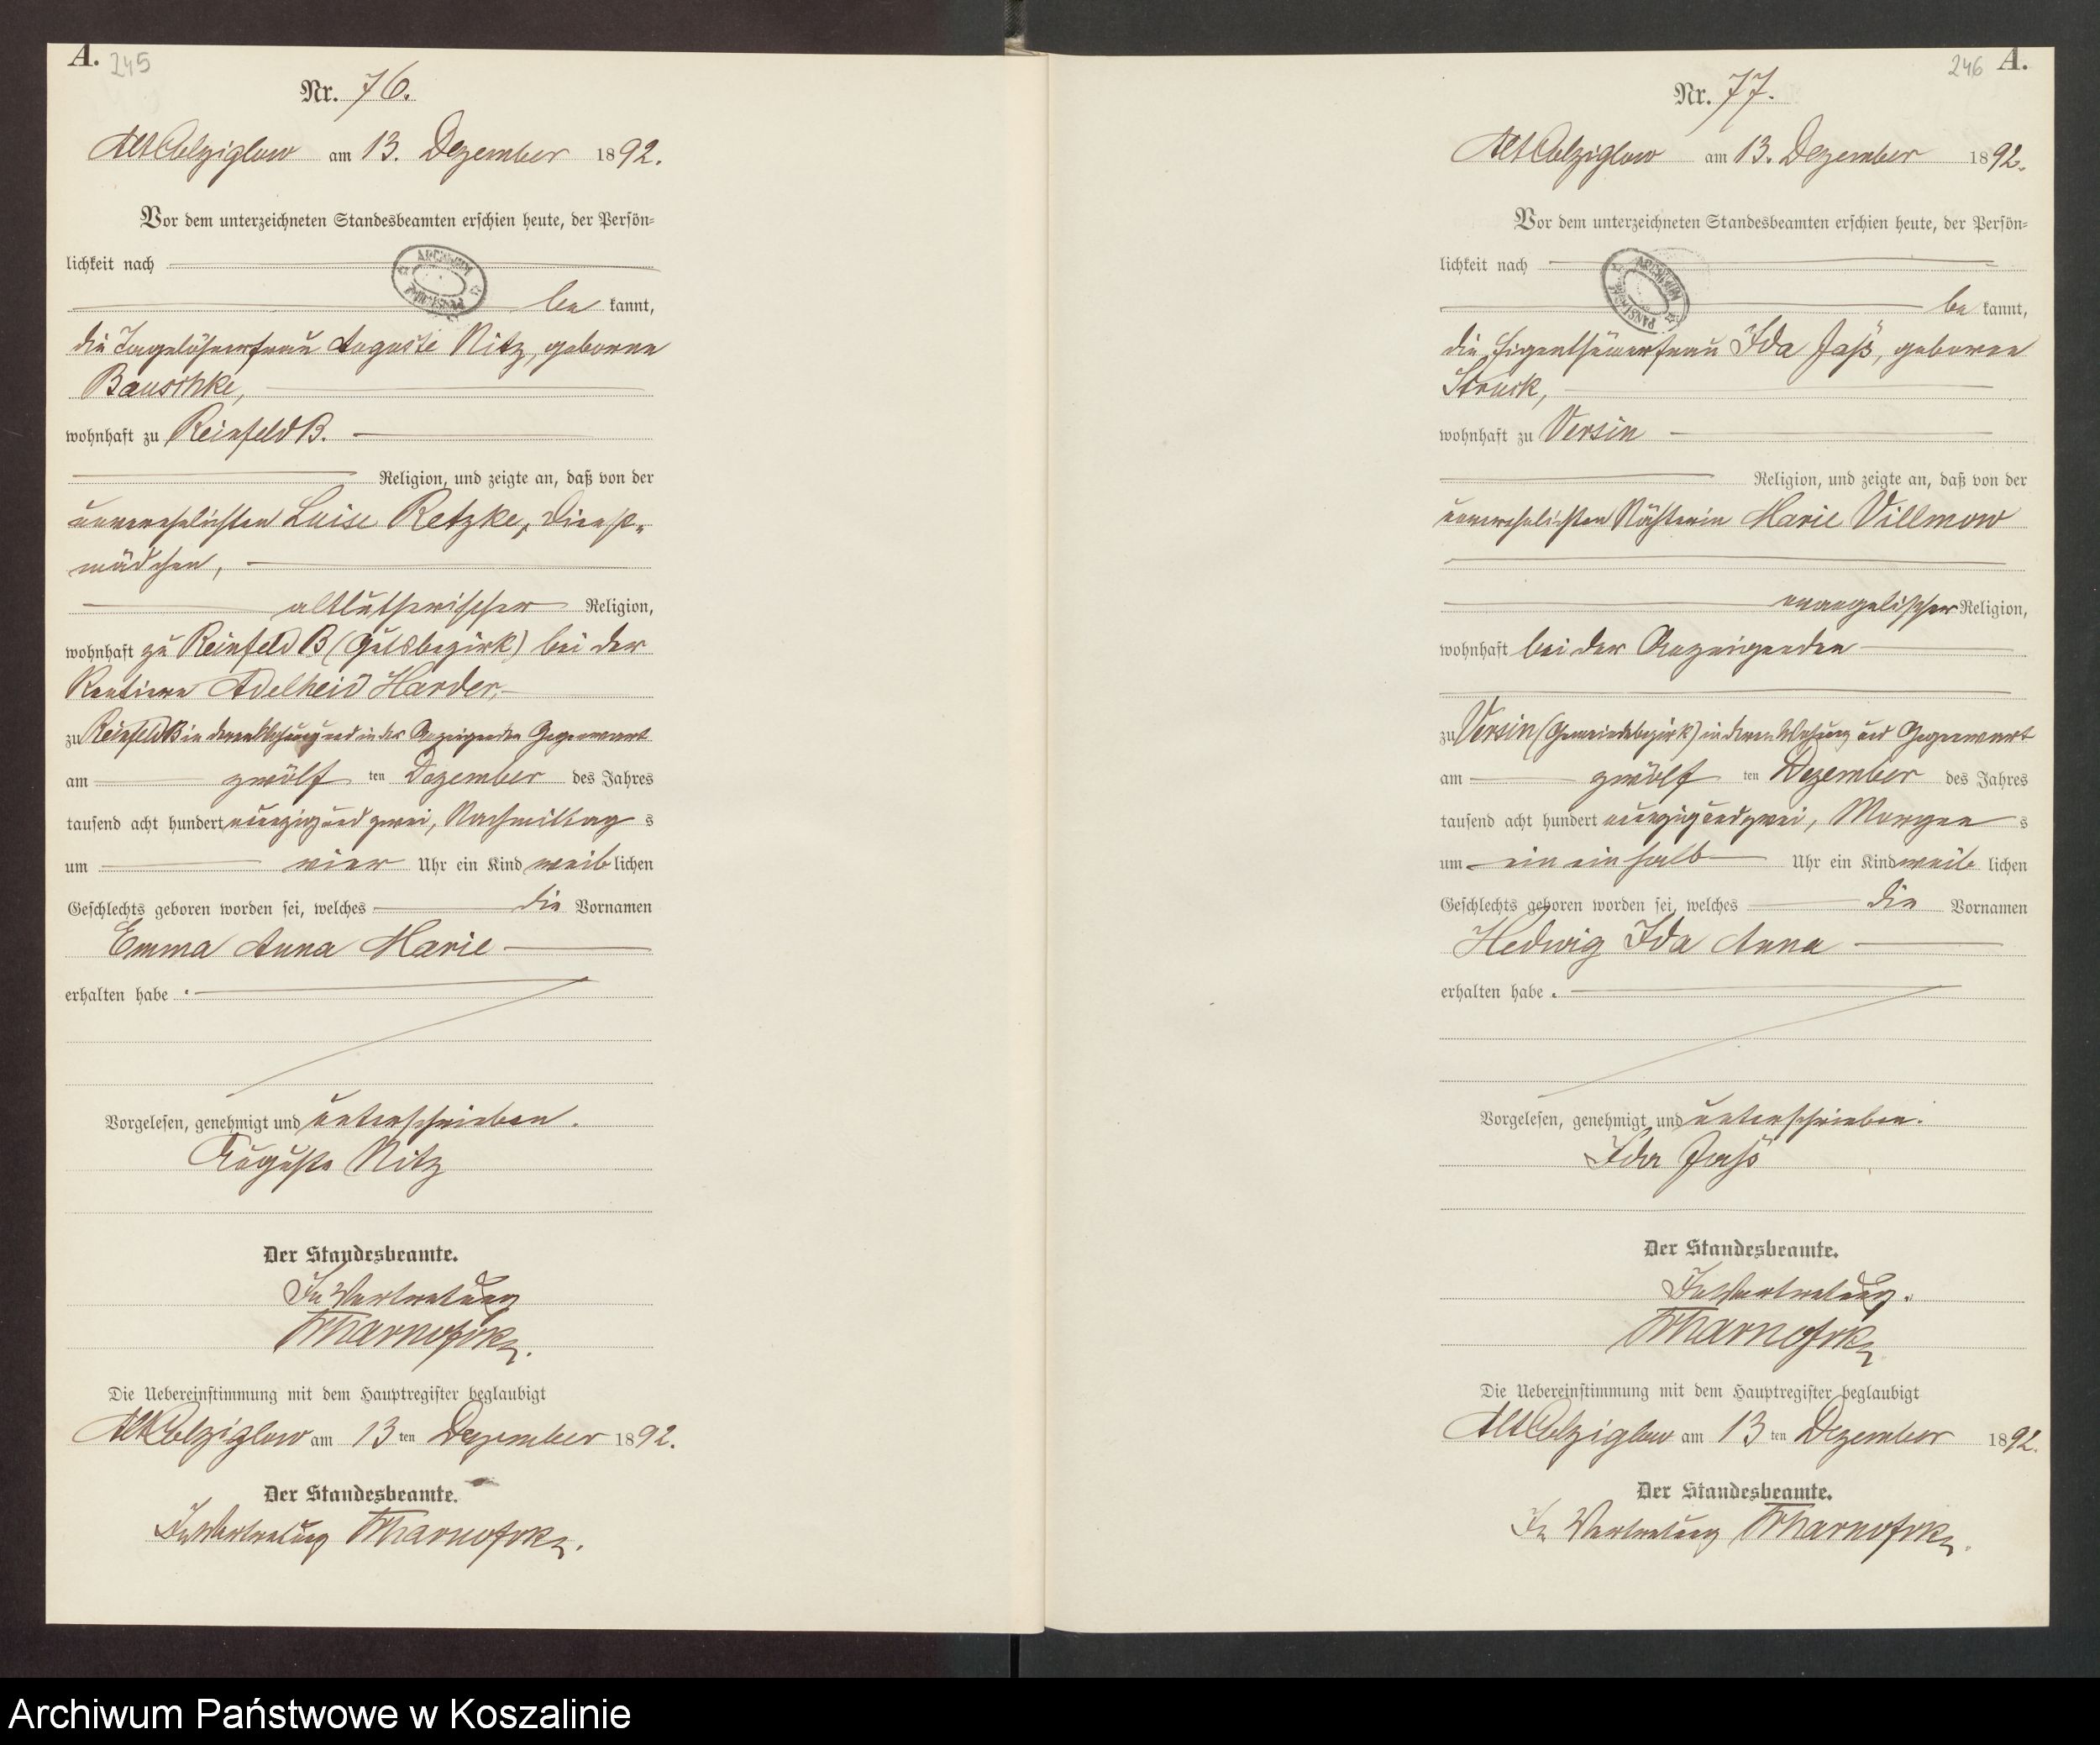 A. 245
Nr. 76.
Alt Colziglow am 13. Dezember 1892.
Vor dem unterzeichneten Standesbeamten erschien heute, der Persön-
lichkeit nach
be kannt,
die Tagelöhnerfrau Auguste Nitz, geborene
Bauschke,
wohnhaft zu Reinfeld B.
Religion, und zeigte an, daß von der
unverehelichten Luise Retzke, Dienst-
mädchen,
altlutherischer Religion,
wohnhaft zu Reinfeld B (Gutsbezirk) bei der
Rentiere Adelheid Harder,
zu Reinfeld B in deren Wohnung und in der Anzeigenden Gegenwart
am zwölf ten Dezember des Jahres
tausend acht hundert neunzig und zwei, Nachmittag s
um vier Uhr ein Kind weib lichen
Geschlechts geboren worden sei, welches die Vornamen
Emma Anna Marie
erhalten habe.
Vorgelesen, genehmigt und unterschrieben.
Auguste Nitz
Der Standesbeamte.
In Vertretung
Die Uebereinstimmung mit dem Hauptregister beglaubigt
Alt Colziglow am 13 ten Dezember 1892.
Der Standesbeamte.
In Vertretung
246 A.
Nr. 77.
Alt Colziglow am 13. Dezember 1892.
Vor dem unterzeichneten Standesbeamten erschien heute, der Persön-
lichkeit nach
be kannt,
die Eigenthümerfrau Ida Jaß, geborene
Struck,
wohnhaft zu Versin
Religion, und zeigte an, daß von der
unverehelichten Nähterin Marie Villmow
evangelischer Religion,
wohnhaft bei der Anzeigenden
zu Versin (Gemeindebezirk) in deren Wohnung und Gegenwart
am zwölf ten Dezember des Jahres
tausend acht hundert neunzig und zwei, Morgen s
um ein ein halb Uhr ein Kind weib lichen
Geschlechts geboren worden sei, welches die Vornamen
Hedwig Ida Anna
erhalten habe.
Vorgelesen, genehmigt und unterschrieben.
Ida Jaß
Der Standesbeamte.
In Vertretung.
Die Uebereinstimmung mit dem Hauptregister beglaubigt
Alt Colziglow am 13 ten Dezember 1892.
Der Standesbeamte.
In Vertretung
Archiwum Państwowe w Koszalinie